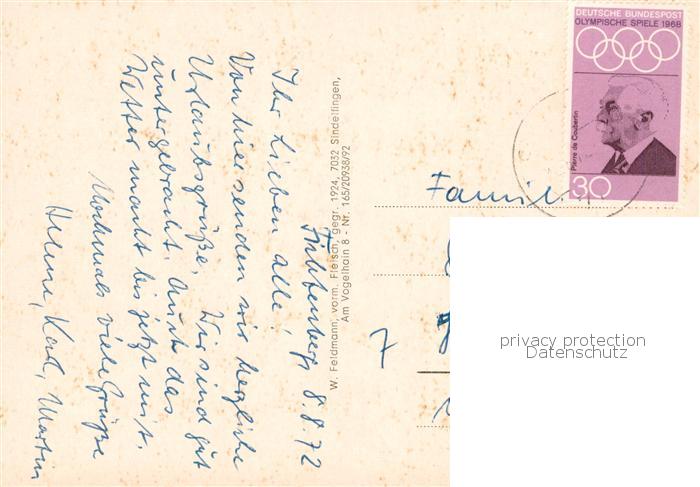 Frühtenberg, 8.8.72
Ihr Lieben alle!
Von hier senden wir herzliche
Urlaubsgrüße. Wir sind gut
untergebracht. Auch das
Wetter macht bis jetzt mit.
Nochmals viele Grüße
Helene, Karl, Martin
W. Feldmann, vorm. Fleisch, gegr. 1924, 7032 Sindelfingen,
Am Vogelhain 8 - Nr. 165/20938/92
DEUTSCHE BUNDESPOST
OLYMPISCHE SPIELE 1968
Pierre de Coubertin
30
Famili
7
privacy protection
Datenschutz